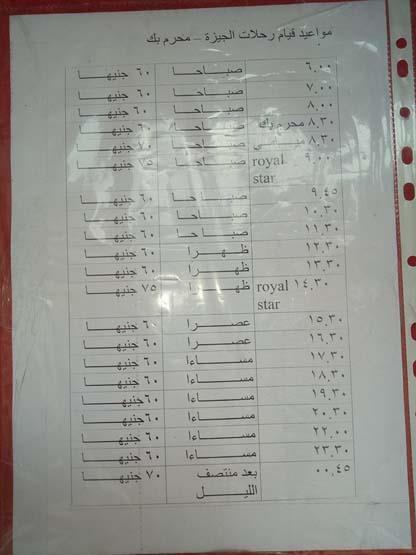 مواعيد قيام رحلات الجيزة – محرم بك
٦.٠٠ صباحا ٦٠ جنيها
٧.٠٠ صباحا ٦٠ جنيها
٨.٠٠ صباحا ٦٠ جنيها
٨.٣٠ محرم بك صباحا ٦٠ جنيها
٨.٣٠ صباحا ٧٠ جنيها
٩.٠٠ royal star صباحا ٧٥ جنيها
٩.٤٥ صباحا ٦٠ جنيها
١٠.٣٠ صباحا ٦٠ جنيها
١١.٣٠ صباحا ٦٠ جنيها
١٢.٣٠ ظهرا ٦٠ جنيها
١٣.٣٠ ظهرا ٦٠ جنيها
١٤.٣٠ royal star ظهرا ٧٥ جنيها
١٥.٣٠ عصرا ٦٠ جنيها
١٦.٣٠ عصرا ٦٠ جنيها
١٧.٣٠ مساءا ٦٠ جنيها
١٨.٣٠ مساءا ٦٠ جنيها
١٩.٣٠ مساءا ٦٠ جنيها
٢٠.٣٠ مساءا ٦٠ جنيها
٢٢.٠٠ مساءا ٦٠ جنيها
٢٣.٣٠ مساءا ٦٠ جنيها
٠٠.٤٥ بعد منتصف الليل ٧٠ جنيها